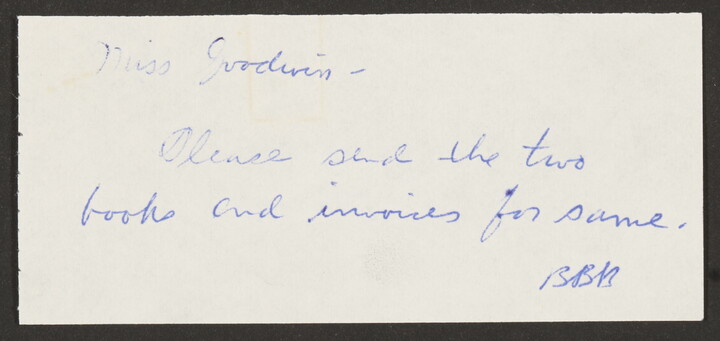 Miss Goodwin -
Please send the two
books and invoices for same.
BBB